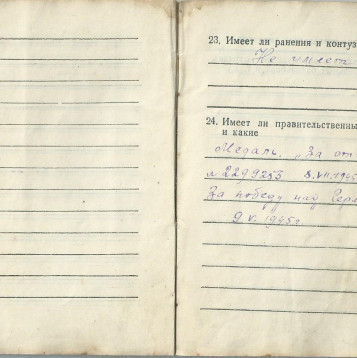 23. Имеет ли ранения и контуз
Не имеет
24. Имеет ли правительственны
и какие
Медаль „За от
№ 2299255 8.VII.1945
За победу над Гер
9 V. 1945 г